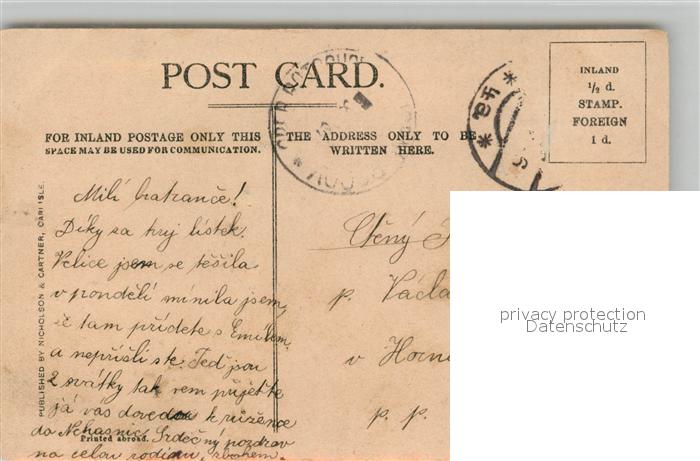 POST CARD.
FOR INLAND POSTAGE ONLY THIS
SPACE MAY BE USED FOR COMMUNICATION.
THE ADDRESS ONLY TO BE
WRITTEN HERE.
INLAND
½ d.
STAMP.
FOREIGN
1 d.
PUBLISHED BY NICHOLSON & CARTNER, CARLISLE.
Milí bratranče!
Díky za tvůj lístek.
Velice jsem se těšila
v pondělí mínila jsem,
že tam přídete s Emilem.
a nepřišli ste. Teď jsou
2 svátky tak sem přijeďte
já vás dovedou k růžence
do
Printed abroad.
Srdečný pozdrav
na celou rodinu, sbohem.
Ctěný
p. Václa
v Horní
p. p.
privacy protection
Datenschutz